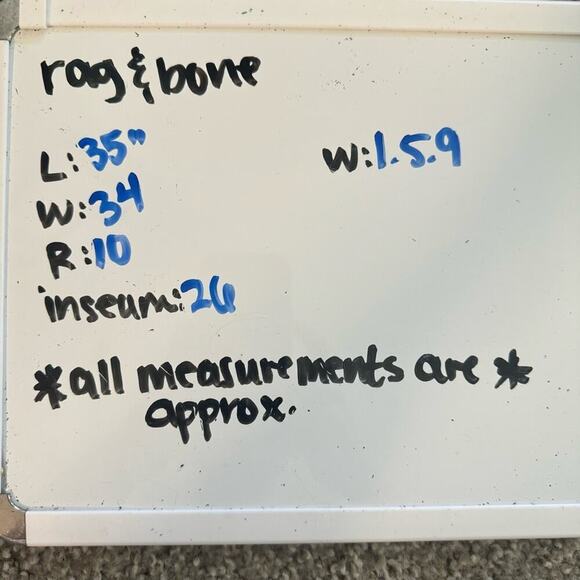 rag & bone
L: 35"
W: 34
R: 10
inseum: 26
W: 1.5.9
*all measurements are *
approx.